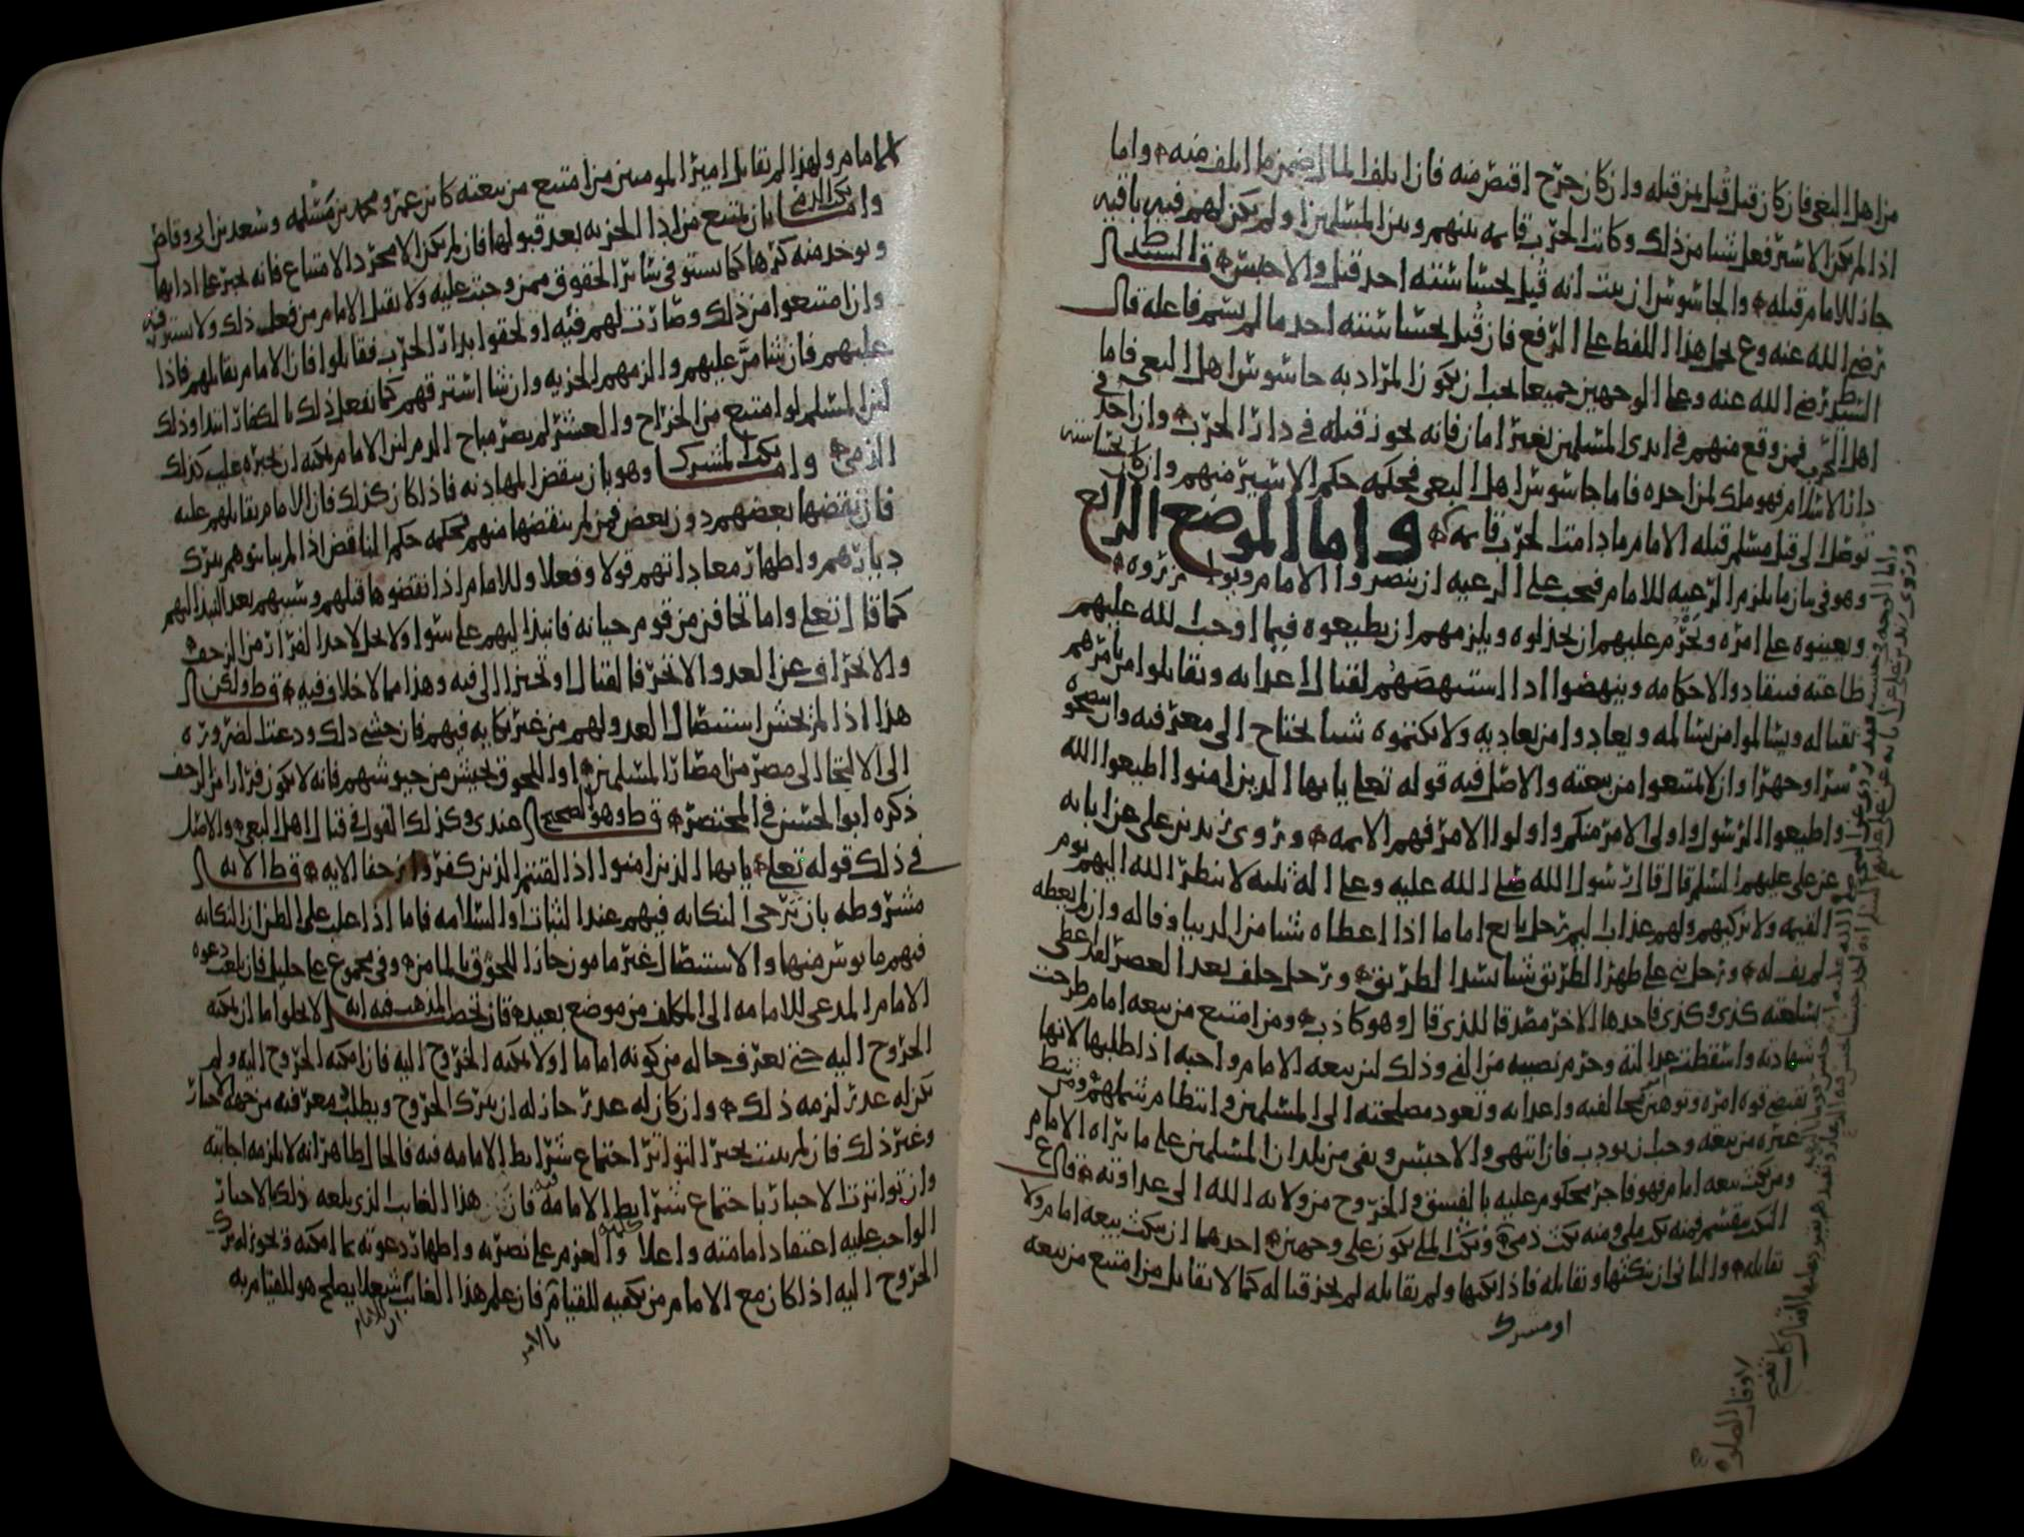 من اهل البغي فان كان قبل قُتل بمن قتله وان كان جرح اقتص منه فان اتلف المال ضمن ما اتلف منه واما
اذا لم يكن الاسير فعل شيا من ذلك وكانت الحرب قايمه بينهم وبين المسلمين اولم يكن لهم فيه باقيه
جاز للامام قتله والجاسوس ان يثبت انه قُتل بحساسته احد قتل والا حبس قال السيد ط
رضي الله عنه وع يحمل هذا اللفظ على الرفع فان قُتل بحساسته احد ما لم يسم فاعله قال
السيد ط رضي الله عنه وعلى الوجهين جميعا يجب ان يكون المراد به جاسوس اهل البغي فاما
اهل الحرب فمن وقع منهم في ايدي المسلمين بغير امان فانه يجوز قتله في دار الحرب وان اخذ في
دار الاسلام فهو ملك لمن اخذه فاما جاسوس اهل البغي فحكمه حكم الاسير منهم وان كان بحساسته
توصل الى قتل مسلم قتله الامام ما دامت الحرب قايمه واما الموضع الرابع
وهو في بيان ما يلزم الرعيه للامام فيجب على الرعيه ان ينصروا الامام ويوازروه
ويعينوه على امره ويَحْرُم عليهم ان يخذلوه ويلزمهم ان يطيعوه فيما اوجب الله عليهم
طاعته فينقادوا لاحكامه وينهضوا اذا استنهضهُم لقتال اعدايه ويقاتلوا من يامرهم
بقتاله ويسالموا من يسالمه ويعادوا من يعاديه ولا يكتموه شيا يحتاج الى معرفته وان ينصحوه
سرا وجهرا وان لا يمتنعوا من بيعته والاصل فيه قوله تعلى يايها الذين امنوا اطيعوا الله
واطيعوا الرسول واولي الامر منكم واولوا الامر فهم الايمه وروى زيد بن علي عن ابايه
عن علي عليهم السلم قال قال رسول الله صلى الله عليه وعلى اله ثلثه لا ينظر الله اليهم يوم
القيمه ولا يزكيهم ولهم عذاب اليم رجل بايع اماما اذا اعطاه شيا من الدنيا وفا له وان لم يعطه
لم يف له ورجل بنى على ظهر الطريق شيا يسد الطريق ورجل حلف بعد العصر لقد اعطي
بسلعته كذى وكذى فاخذها الاخر مصدقا للذي قال وهو كاذب ومن امتنع من بيعه امام طرحت
شهادته واسقطت عدالته وحرم نصيبه من الفي وذلك لان بيعه الامام واجبه اذا طلبها لانها
تقتضي قوه امره وتوهين مخالفيه واعدايه وتعود مصلحته الى المسلمين وانتظام شملهم ومن ثبط
غيره من بيعته وجب ان يودب فان انتهى والا حبس ونفي من بلدان المسلمين على ما يراه الامام
ومن نكث بيعه امام فهو فاجر محكوم عليه بالفسق والخروج من ولايه الله الى عداوته قال ع
النكث ينقسم فمنه نكث ملي ومنه نكث ذمي ونكث الملي يكون على وجهين احدهما ان ينكث بيعه امام ولا
يقاتله والثاني ان ينكثها ويقاتله فاذا نكثها ولم يقاتله لم يجز قتاله كما لا يقاتل من امتنع من بيعه
او مشرك
لاوقات الصلوه
الامام ولهذا لم يقاتل امير المومنين من امتنع من بيعته كابن عمر ومحمد بن مسلمه وسعد بن ابي وقاص
واما نكث الذمي بان يمتنع من ادا الجزيه بعد قبولها فان لم يكن الا مجرد الامتناع فانه يجبر على ادايها
ويوخذ منه كرها كما يستوفى سائر الحقوق ممن وجبت عليه ولا يقتل الامام من فعل ذلك ولا يسترقه
وان امتنعوا من ذلك وصارت لهم فئه او لحقوا بدار الحرب فقاتلوا فان الامام يقاتلهم فاذا
عليهم فان شا منّ عليهم والزمهم الجزيه وان شا استرقهم كما يفعل ذلك بالكفار ابتدا وذلك
لان المسلم لو امتنع من الخراج والعشر لم يصر مباح الدم لان الامام يمكنه ان يجبره عليه كذلك
الذمي واما نكث المشرك وهو بان ينقض المهادنه فاذا كان كذلك فان الامام يقاتلهم عليه
فان نقضها بعضهم دون بعض فمن لم ينقضها منهم فحكمه حكم الناقض اذا لم يباينوهم بترك
ديارهم واظهار معاداتهم قولا وفعلا وللامام اذا نقضوها قتلهم وسبيهم بعد النبذ اليهم
كما قال تعلى واما تخافن من قوم خيانه فانبذ اليهم على سوا ولا يحل لاحد الفرار من الزحف
والانحراف عن العدو الا متحرفا لقتال او متحيزا الى فيه وهذا مما لا خلاف فيه قال ط ولكن
هذا اذا لم يخش استيصال العدو لهم من غير نكايه فيهم فان خشي ذلك ودعت الضروره
الى الالتجا الى مصر من امصار المسلمين او اللحوق بجيش من جيوشهم فانه لا يكون فرارا من الزحف
ذكره ابو الحسين في المختصر قال ط وهو الصحيح عندي وكذلك القول في قتال اهل البغي والاصل
في ذلك قوله تعلى يايها الذين امنوا اذا لقيتم الذين كفروا زحفا الايه قال ط الا انه
مشروطه بان يرجى النكايه فيهم عند الثبات او السلامه فاما اذا غلب على الظن ان النكايه
فيهم مايوس منها والاستيصال غير مامون جاز اللحوق بالمامن وفي مجموع علي خليل فان بلغت دعوه
الامام المدعي للامامه الى المكلف من موضع بعيد فان تحصيل المذهب فيه انه لا يخلوا اما ان يمكنه
الخروج اليه حتى يعرف حاله من كونه اماما او لا يمكنه الخروج اليه فان امكنه الخروج اليه ولم
يكن له عذر لزمه ذلك وان كان له عذر جاز له ان يترك الخروج ويطلب معرفته من جهه الاخبار
وغير ذلك فان لم يثبت بخبر التواتر اجتماع شرايط الامامه فيه فالحال ظاهر انه لا يلزمه اجابته
وان تواترت الاخبار باجتماع شرايط الامامه فيه فان هذا الغايب الذي بلغه ذلك الاخبار
الواجب عليه اعتقاد امامته واعلا كلمته والعزم على نصرته واظهار دعوته بما امكنه ويجوز له ترك
الخروج اليه اذا كان مع الامام من يكفيه للقيام فان علم هذا الغايب ان للامام شغلا يصلح هو للقيام به
بالامر